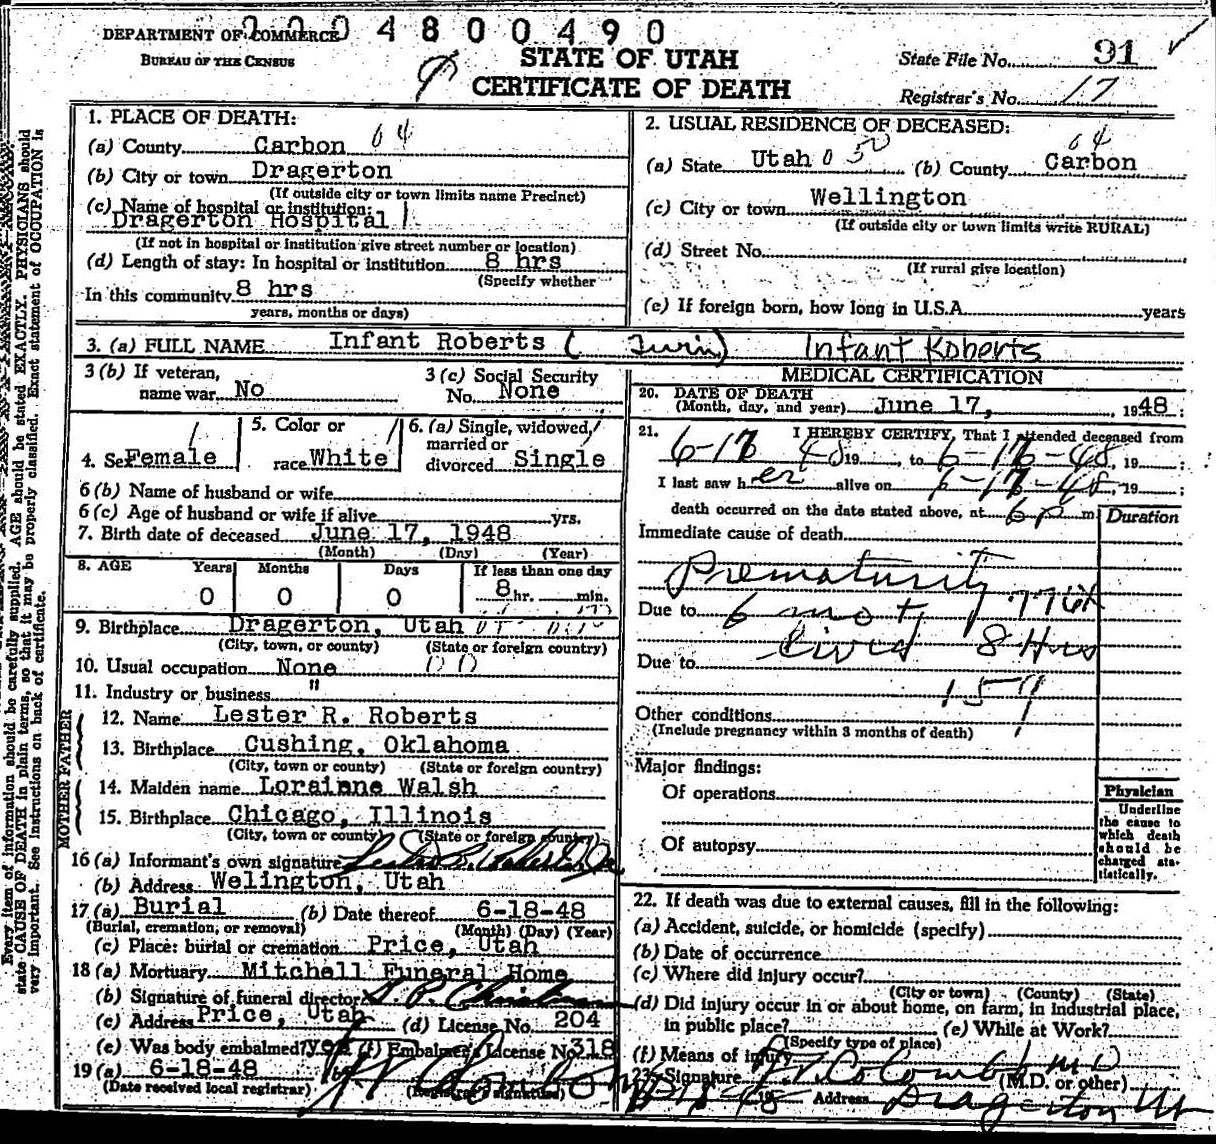 2004800490
DEPARTMENT OF COMMERCE
BUREAU OF THE CENSUS
STATE OF UTAH
CERTIFICATE OF DEATH
State File No. 91
Registrar's No. 17
Every item of information should be carefully supplied. AGE should be stated EXACTLY. PHYSICIANS should
state CAUSE OF DEATH in plain terms, so that it may be properly classified. Exact statement of OCCUPATION is
very important. See instructions on back of certificate.
1. PLACE OF DEATH:
(a) County Carbon 64
(b) City or town Dragerton
(If outside city or town limits name Precinct)
(c) Name of hospital or institution:
Dragerton Hospital
(If not in hospital or institution give street number or location)
(d) Length of stay: In hospital or institution 8 hrs
(Specify whether
In this community 8 hrs
years, months or days)
2. USUAL RESIDENCE OF DECEASED:
64
(a) State Utah 050 (b) County Carbon
(c) City or town Wellington
(If outside city or town limits write RURAL)
(d) Street No.
(If rural give location)
(e) If foreign born, how long in U.S.A. years
3. (a) FULL NAME Infant Roberts ( Twin) Infant Roberts
3 (b) If veteran, name war No
3 (c) Social Security No. None
4. Sex Female
5. Color or race White
6. (a) Single, widowed, married or divorced Single
6 (b) Name of husband or wife
6 (c) Age of husband or wife if alive yrs.
7. Birth date of deceased June 17, 1948
(Month) (Day) (Year)
8. AGE Years Months Days If less than one day
0 0 0 8 hr. min.
9. Birthplace Dragerton, Utah
(City, town, or county) (State or foreign country)
10. Usual occupation None
11. Industry or business "
FATHER
12. Name Lester R. Roberts
13. Birthplace Cushing, Oklahoma
(City, town or county) (State or foreign country)
MOTHER
14. Maiden name Lorainne Walsh
15. Birthplace Chicago, Illinois
(City, town or county) (State or foreign country)
16 (a) Informant's own signature
(b) Address Welington, Utah
17 (a) Burial (b) Date thereof 6-18-48
(Burial, cremation, or removal) (Month) (Day) (Year)
(c) Place: burial or cremation Price, Utah
18 (a) Mortuary Mitchell Funeral Home
(b) Signature of funeral director
(c) Address Price, Utah (d) License No. 204
(e) Was body embalmed? yes (f) Embalmer's License No. 318
19 (a) 6-18-48 (b)
(Date received local registrar) (Registrar's signature)
MEDICAL CERTIFICATION
20. DATE OF DEATH
(Month, day, and year) June 17, , 1948 ;
21. I HEREBY CERTIFY, That I attended deceased from
48 19 , to , 19 ;
I last saw her alive on , 19 ;
death occurred on the date stated above, at 6 P m
Duration
Immediate cause of death
Prematurity
Due to 6 mo +, 776X
Lived 8 Hrs
Due to
159
Other conditions
(Include pregnancy within 3 months of death)
Major findings:
Of operations
Of autopsy
Physician
Underline
the cause to
which death
should be
charged sta-
tistically.
22. If death was due to external causes, fill in the following:
(a) Accident, suicide, or homicide (specify)
(b) Date of occurrence
(c) Where did injury occur?
(City or town) (County) (State)
(d) Did injury occur in or about home, on farm, in industrial place,
in public place? (e) While at Work?
(Specify type of place)
(f) Means of injury
23. Signature F. V. Colombo MD (M.D. or other)
19 Address Dragerton Ut